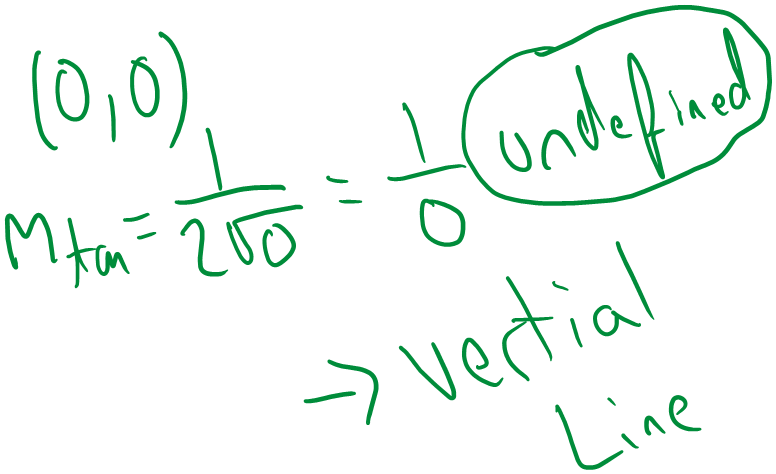 (0,0)
m_tan = 1/(2√0) = 1/0 undefined
→ Vertial
Line